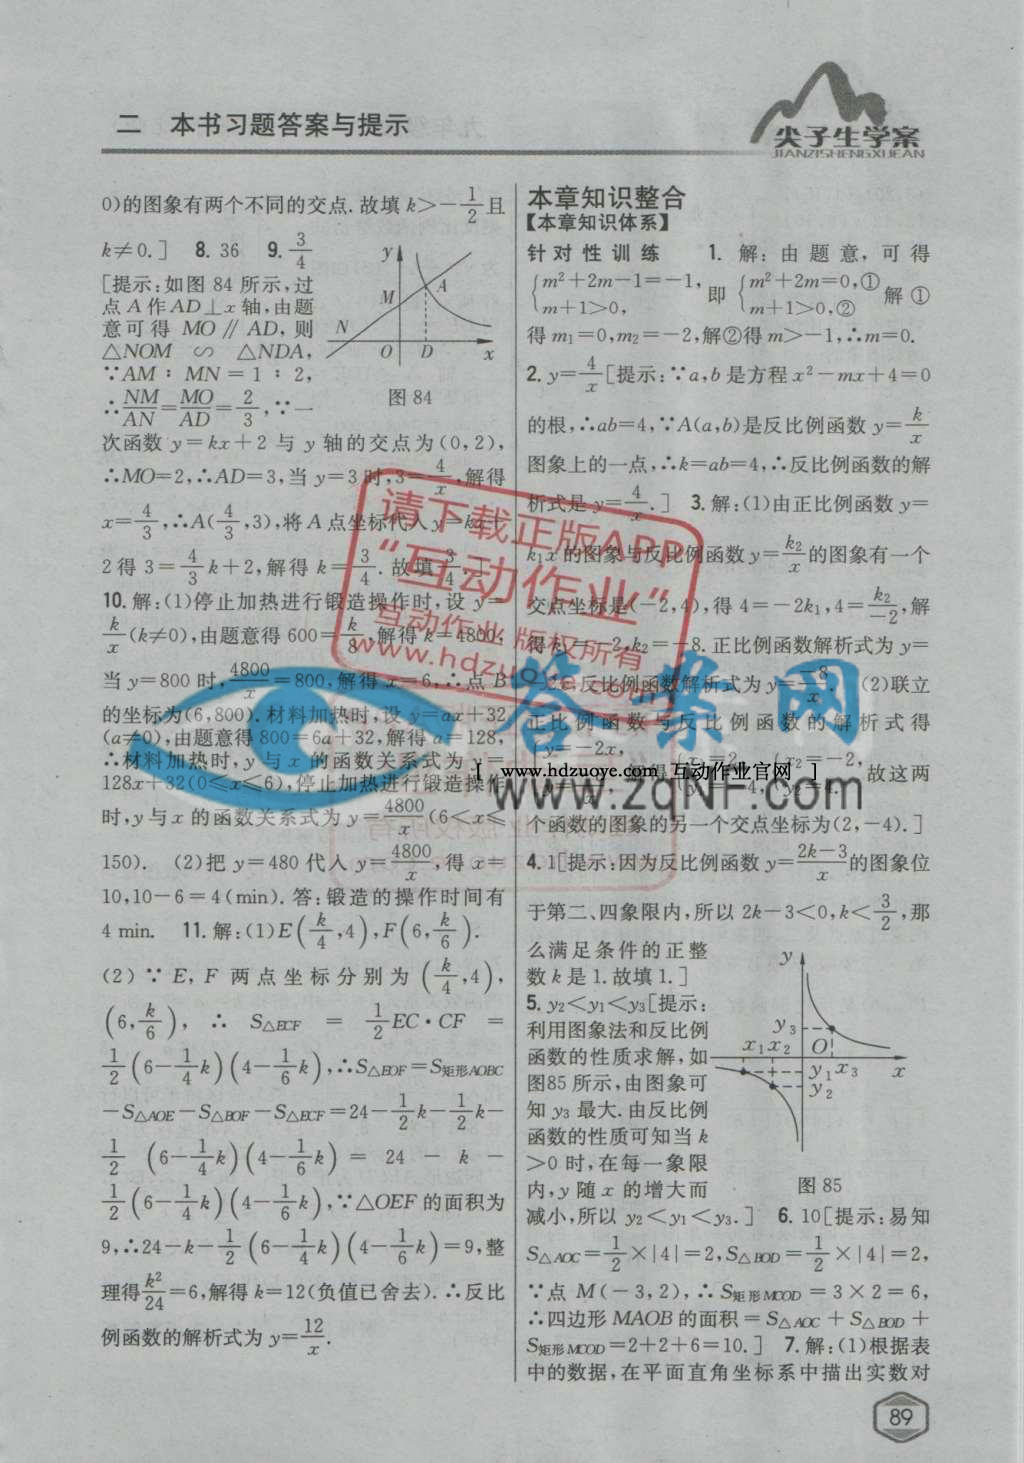 二 本书习题答案与提示
尖子生学案
JIANZISHENGXUEAN
0)的图象有两个不同的交点.故填k>-1/2且
k≠0.] 8. 36 9. 3/4
[提示:如图 84 所示,过
点 A 作 AD⊥x 轴,由题
意可得 MO∥AD,则
△NOM ∽ △NDA,
∵AM∶MN=1∶2,
∴NM/AN=MO/AD=2/3,∵一
y
M
A
N
O
D
x
图 84
次函数 y=kx+2 与 y 轴的交点为(0,2),
∴MO=2,∴AD=3,当 y=3时,3=4/x,解得
x=4/3,∴A(4/3,3),将A点坐标代入y=kx+
2得 3=4/3k+2,解得 k=3/4.故填3/4.]
10.解:(1)停止加热进行锻造操作时,设 y=
k/x(k≠0),由题意得600=k/8,解得k=4800,
当 y=800 时,4800/x=800,解得 x=6,∴点 B
的坐标为(6,800).材料加热时,设 y=ax+32
(a≠0),由题意得800=6a+32,解得 a=128,
∴材料加热时,y 与 x 的函数关系式为 y=
128x+32(0≤x≤6),停止加热进行锻造操作
时,y与x的函数关系式为y=4800/x(6<x≤
150). (2)把 y=480 代入 y=4800/x,得 x=
10,10-6=4(min).答:锻造的操作时间有
4 min. 11.解:(1)E(k/4,4),F(6,k/6).
(2)∵E,F 两点坐标分别为(k/4,4),
(6,k/6),∴ S△ECF = 1/2EC·CF =
1/2(6-1/4k)(4-1/6k),∴S△EOF=S矩形AOBC
-S△AOE-S△BOF-S△ECF=24-1/2k-1/2k-
1/2(6-1/4k)(4-1/6k)=24-k-
1/2(6-1/4k)(4-1/6k),∵△OEF的面积为
9,∴24-k-1/2(6-1/4k)(4-1/6k)=9,整
理得k²/24=6,解得 k=12(负值已舍去).∴反比
例函数的解析式为 y=12/x.
本章知识整合
【本章知识体系】
针对性训练 1. 解:由题意,可得
{m²+2m-1=-1, m+1>0, 即{m²+2m=0,① m+1>0,② 解①
得 m₁=0,m₂=-2,解②得 m>-1,∴m=0.
2. y=4/x[提示:∵a,b 是方程 x²-mx+4=0
的根,∴ab=4,∵A(a,b)是反比例函数 y=k/x
图象上的一点,∴k=ab=4,∴反比例函数的解
析式是 y=4/x.] 3.解:(1)由正比例函数 y=
k₁x的图象与反比例函数 y=k₂/x的图象有一个
交点坐标是(-2,4),得 4=-2k₁,4=k₂/-2,解
得k₁=-2,k₂=-8.正比例函数解析式为 y=
-2x;反比例函数解析式为 y=-8/x. (2)联立
正比例函数与反比例函数的解析式得
y=-2x,
x₂=-2, 故这两
个函数的图象的另一个交点坐标为(2,-4).]
4. 1[提示:因为反比例函数 y=2k-3/x的图象位
于第二、四象限内,所以 2k-3<0,k<3/2,那
么满足条件的正整
数 k 是 1.故填 1.]
5. y₂<y₁<y₃[提示:
利用图象法和反比例
函数的性质求解,如
图85 所示,由图象可
知 y₃ 最大.由反比例
函数的性质可知当 k
>0 时,在每一象限
内,y 随 x 的增大而
y
y₃
x₁ x₂
O
y₁ x₃
x
y₂
图 85
减小,所以 y₂<y₁<y₃.] 6. 10[提示:易知
S△AOC=1/2×|4|=2,S△BOD=1/2×|4|=2,
∵点 M(-3,2),∴S矩形MCOD=3×2=6,
∴四边形 MAOB 的面积=S△AOC+S△BOD+
S矩形MCOD=2+2+6=10.] 7.解:(1)根据表
中的数据,在平面直角坐标系中描出实数对
89
请下载正版APP
“互动作业”
互动作业 版权所有
答案网
[ www.hdzuoye.com 互动作业官网 ]
www.zqNF.com